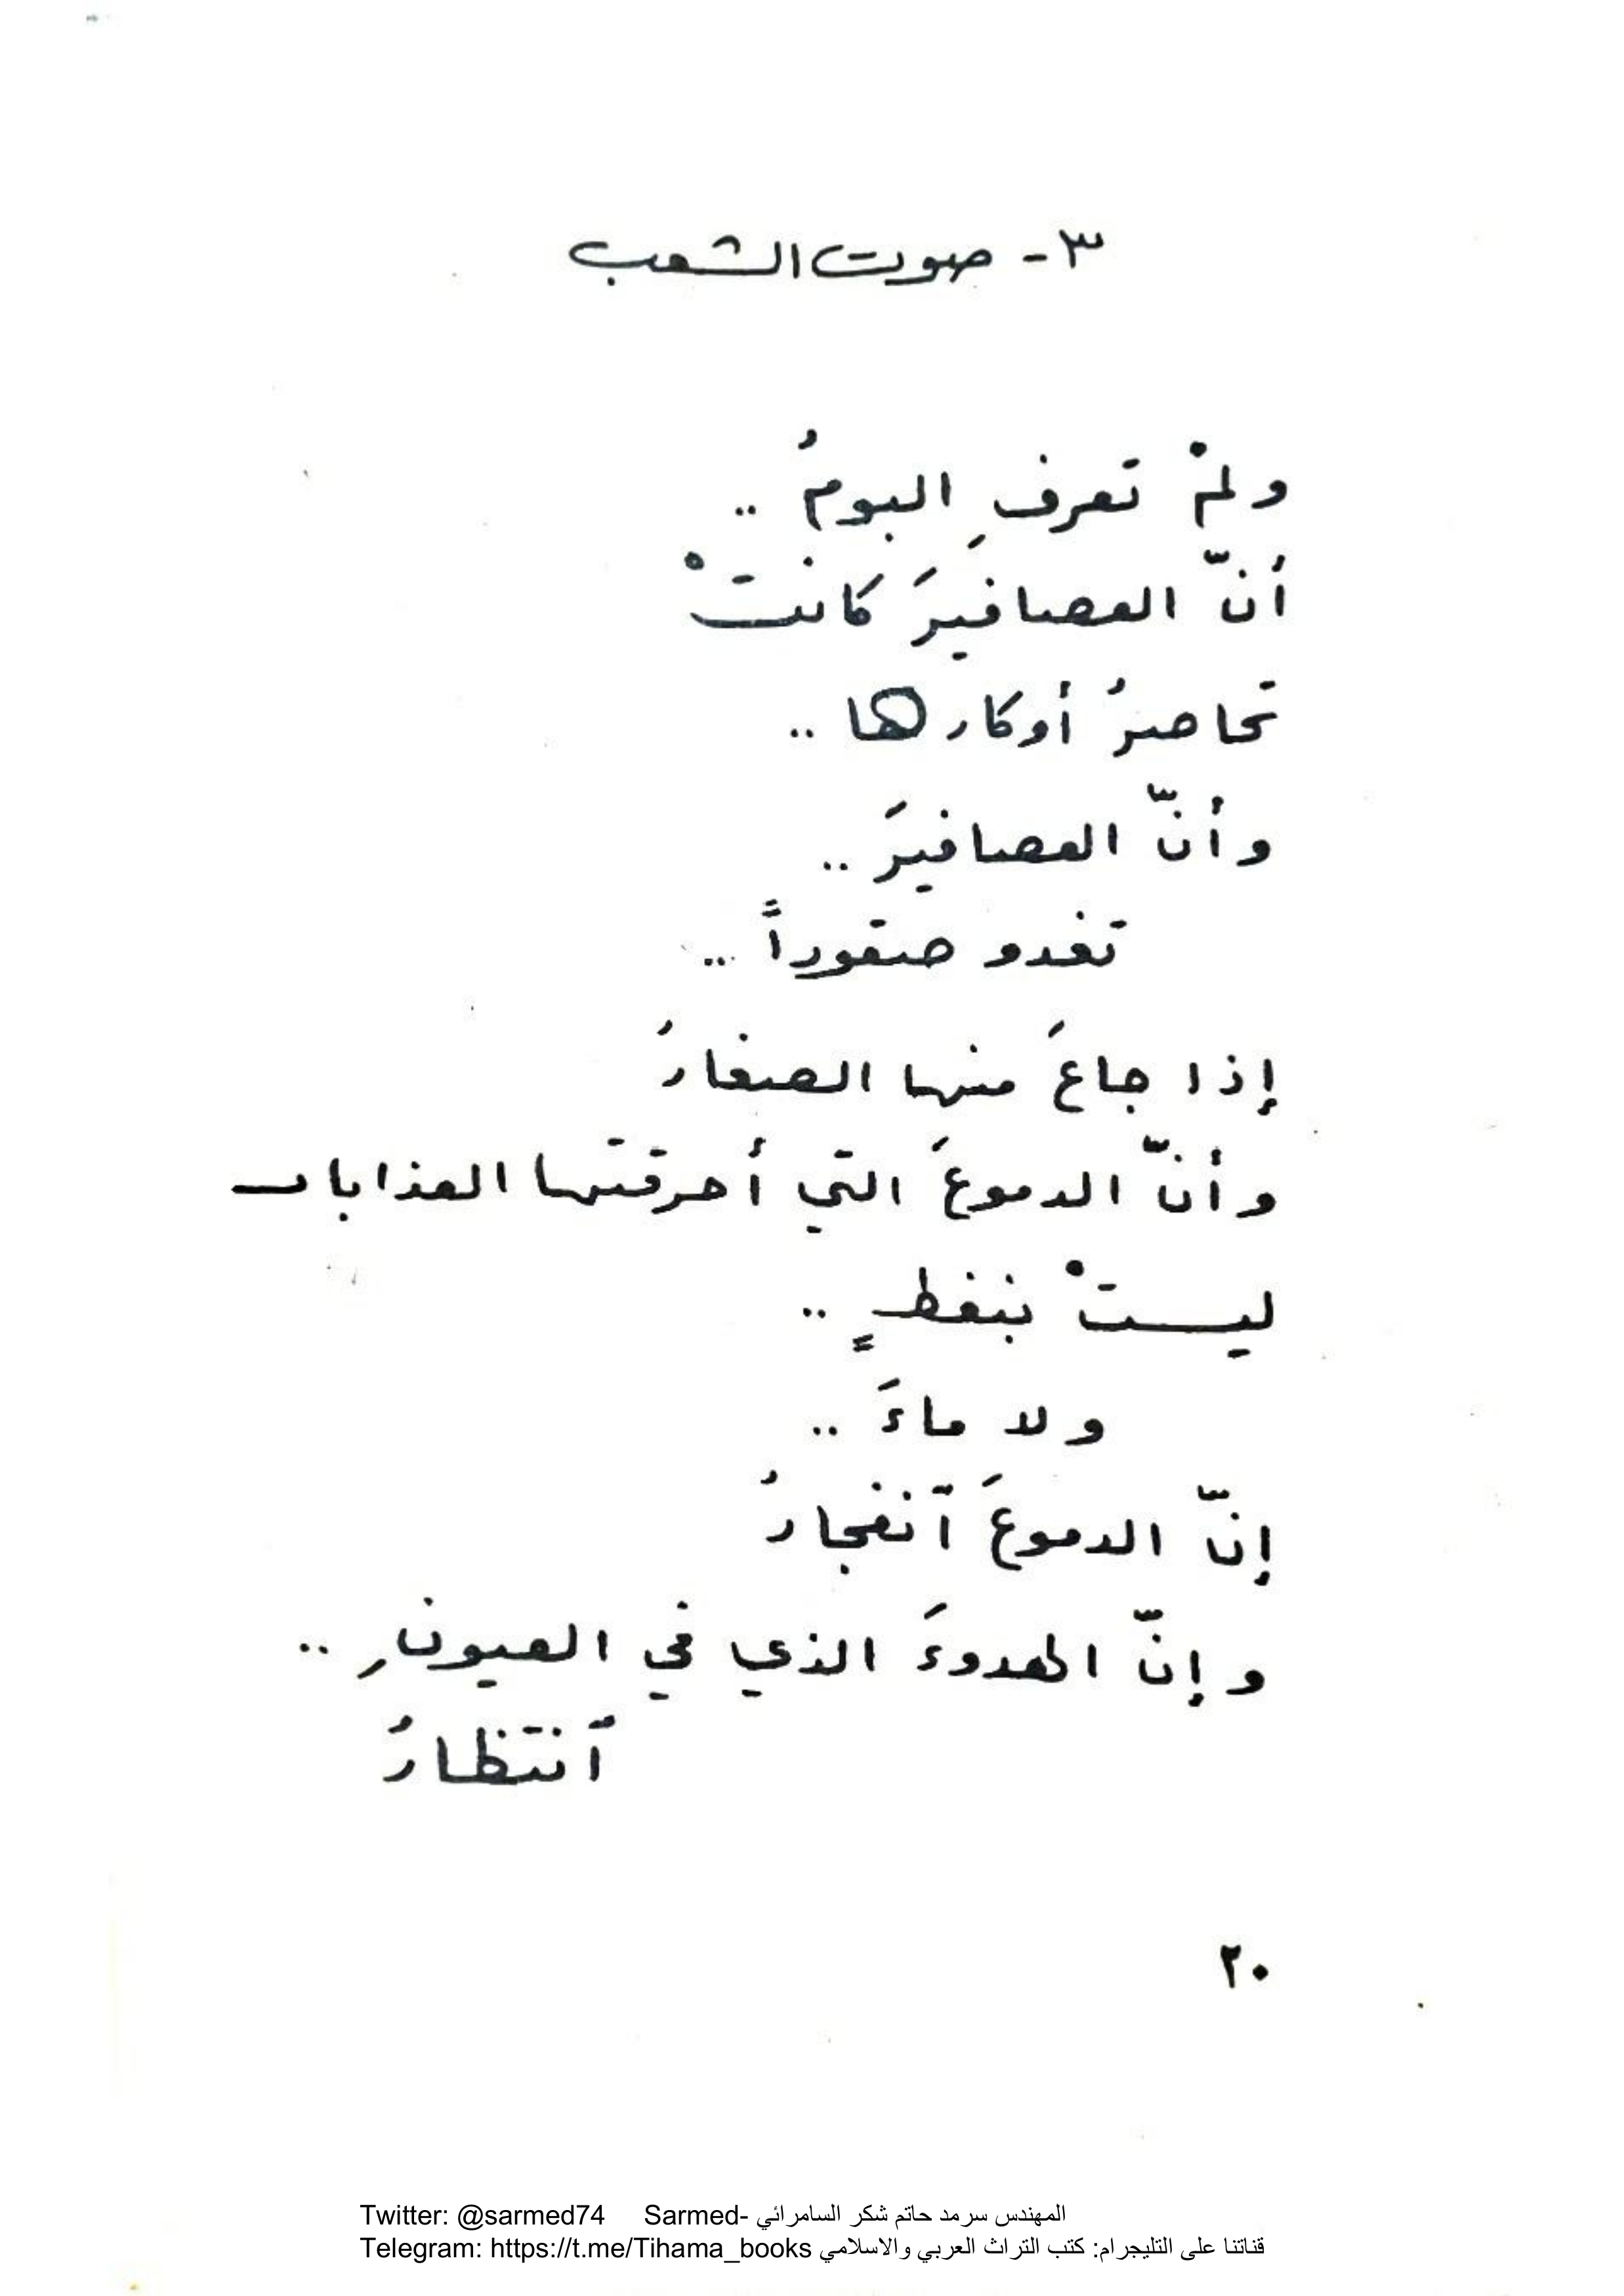 ٣- صوت الشعب
ولمْ تعرفِ البومُ ..
أنّ العصافيرَ كانتْ
تحاصرُ أوكارها ..
وأنّ العصافيرَ ..
تغدو صقوراً ...
إذا جاعَ منها الصغارُ
وأنّ الدموعَ التي أحرقتها العذابات
ليستْ بنفطٍ ..
ولا ماءَ ..
إنّ الدموعَ ٱنفجارُ
وإنّ الهدوءَ الذي في العيونِ ..
ٱنتظارُ
٢٠
Twitter: @sarmed74 Sarmed- المهندس سرمد حاتم شكر السامرائي
Telegram: https://t.me/Tihama_books قناتنا على التليجرام: كتب التراث العربي والاسلامي